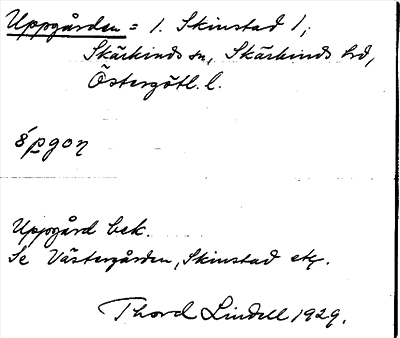 Uppgården = 1. Skinstad 1;
Skärkinds sn, Skärkinds hd,
Östergötl. l.
Uppgård bek.
Se Västergården, Skinstad etc.
Thord Lindell 1929.